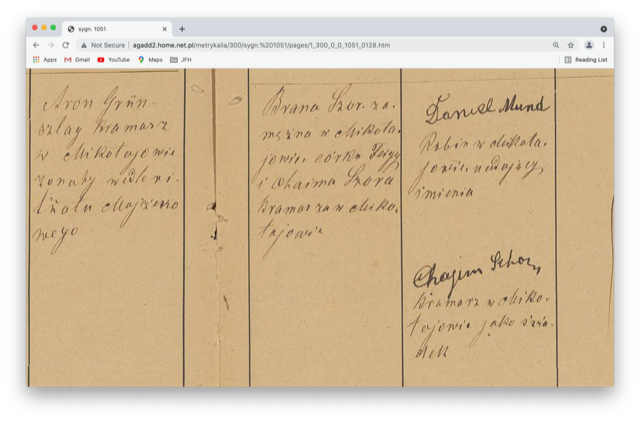 sygn. 1051
Not Secure | agadd2.home.net.pl/metrykalia/300/sygn.%201051/pages/1_300_0_0_1051_0128.htm
Apps Gmail YouTube Maps JFH Reading List
Aron Grün-
szlag kramarz
w Mikołajowie
żonaty wedle ri-
tuału Mojżeszo
wego
Brana Szor za-
mężna w Mikoła-
jowie, córka Feigy
i Chaima Szora
kramarza w Miko-
łajowie
Daniel Mund
Rabin w Mikoła-
jowie, nadający
imienia
Chajim Schorr
kramarz w Miko-
łajowie jako świa-
dek